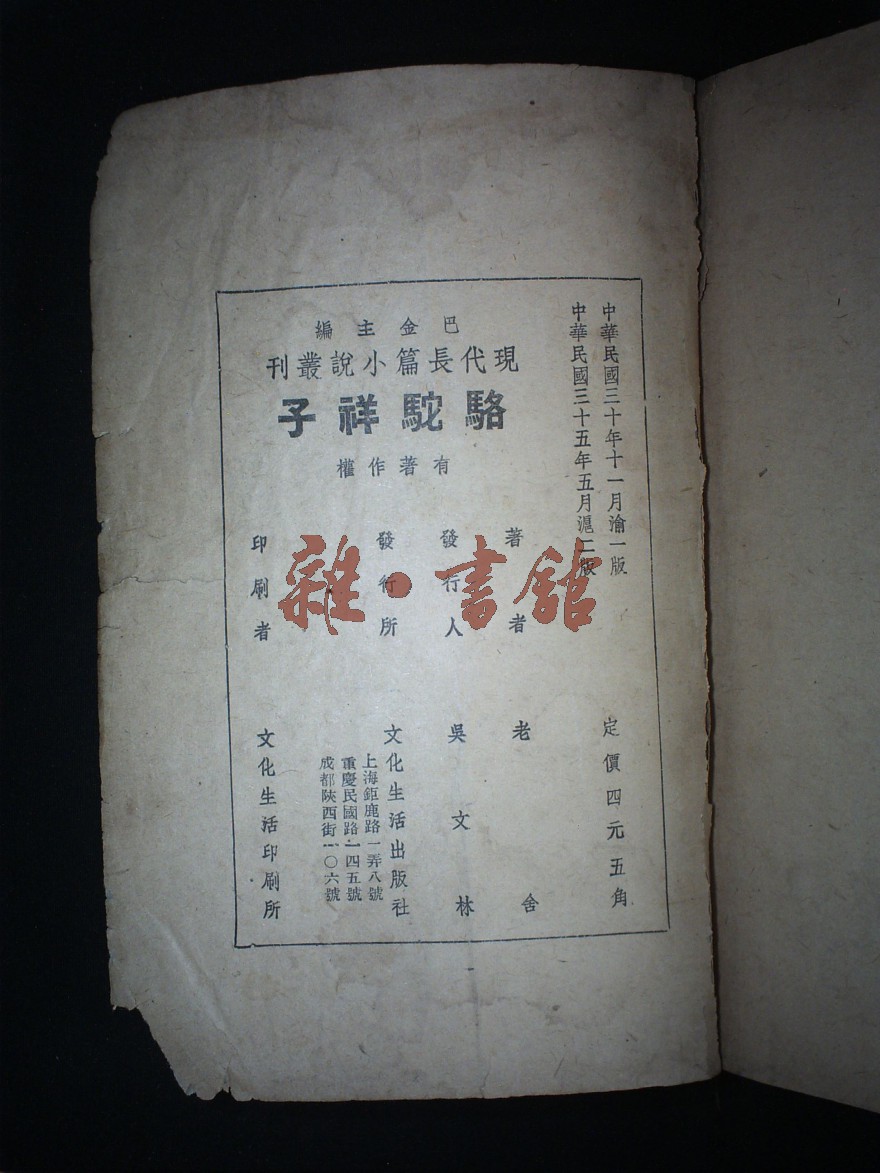 中華民國三十年十一月渝一版
中華民國三十五年五月滬二版
定價四元五角
巴金主編
現代長篇小說叢刊
駱駝祥子
有著作權
著者 老舍
發行人 吳文林
發行所 文化生活出版社
上海鉅鹿路一弄八號
重慶民國路一四五號
成都陝西街一〇六號
印刷者 文化生活印刷所
雜·書館